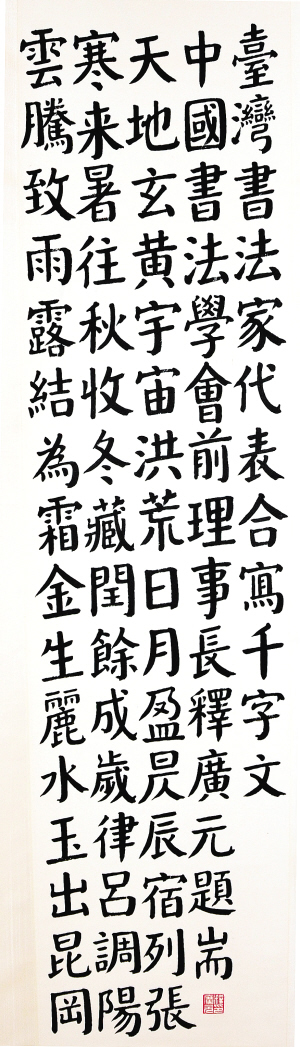 臺灣書法家代表合寫千字文
中國書法學會前理事長釋廣元題耑
天地玄黃宇宙洪荒日月盈昃辰宿列張
寒来暑往秋收冬藏閏餘成歲律呂調陽
雲騰致雨露結為霜金生麗水玉出昆岡